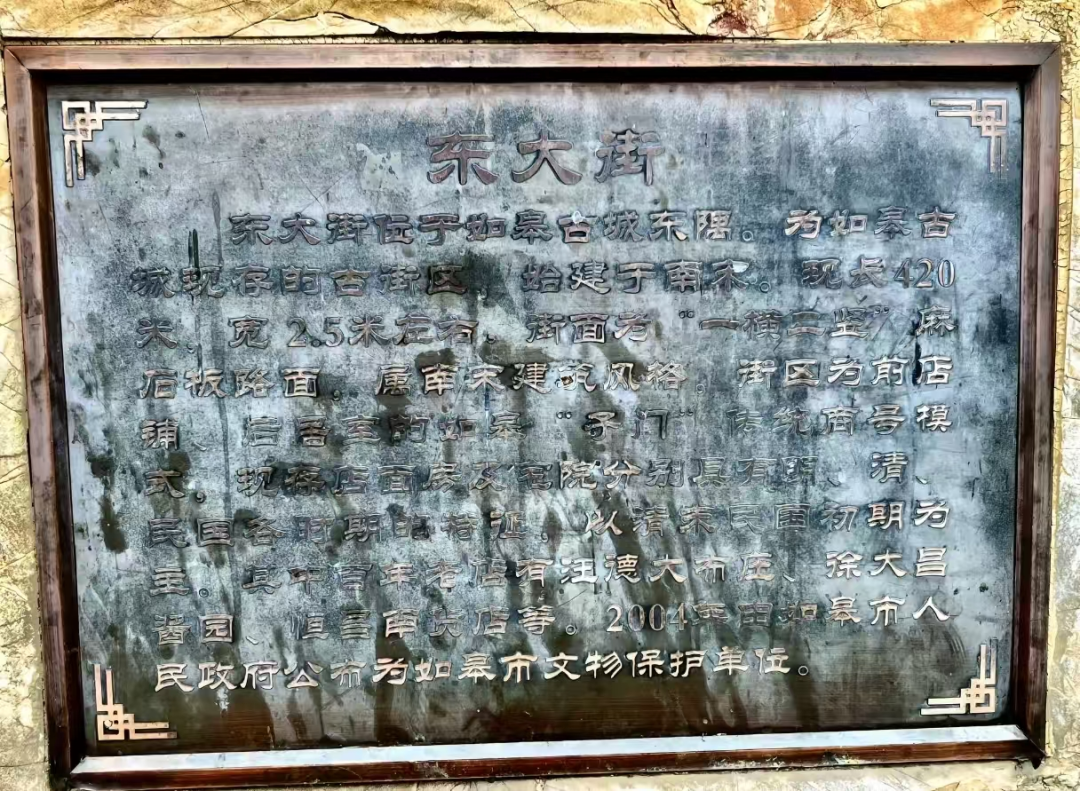 东大街
东大街位于如皋古城东隅。为如皋古
城现存的古街区，始建于南宋。现长420
米、宽2.5米左右，街面为“一横二竖”麻
石板路面。属南宋建筑风格，街区为前店
铺、后居室的如皋“子门”传统商号模
式，现存店面房及宅院分别具有明、清、
民国各时期的特征，以清末民国初期为
主。其中百年老店有汪德大布庄、徐大昌
酱园、恒昌南货店等。2004年由如皋市人
民政府公布为如皋市文物保护单位。